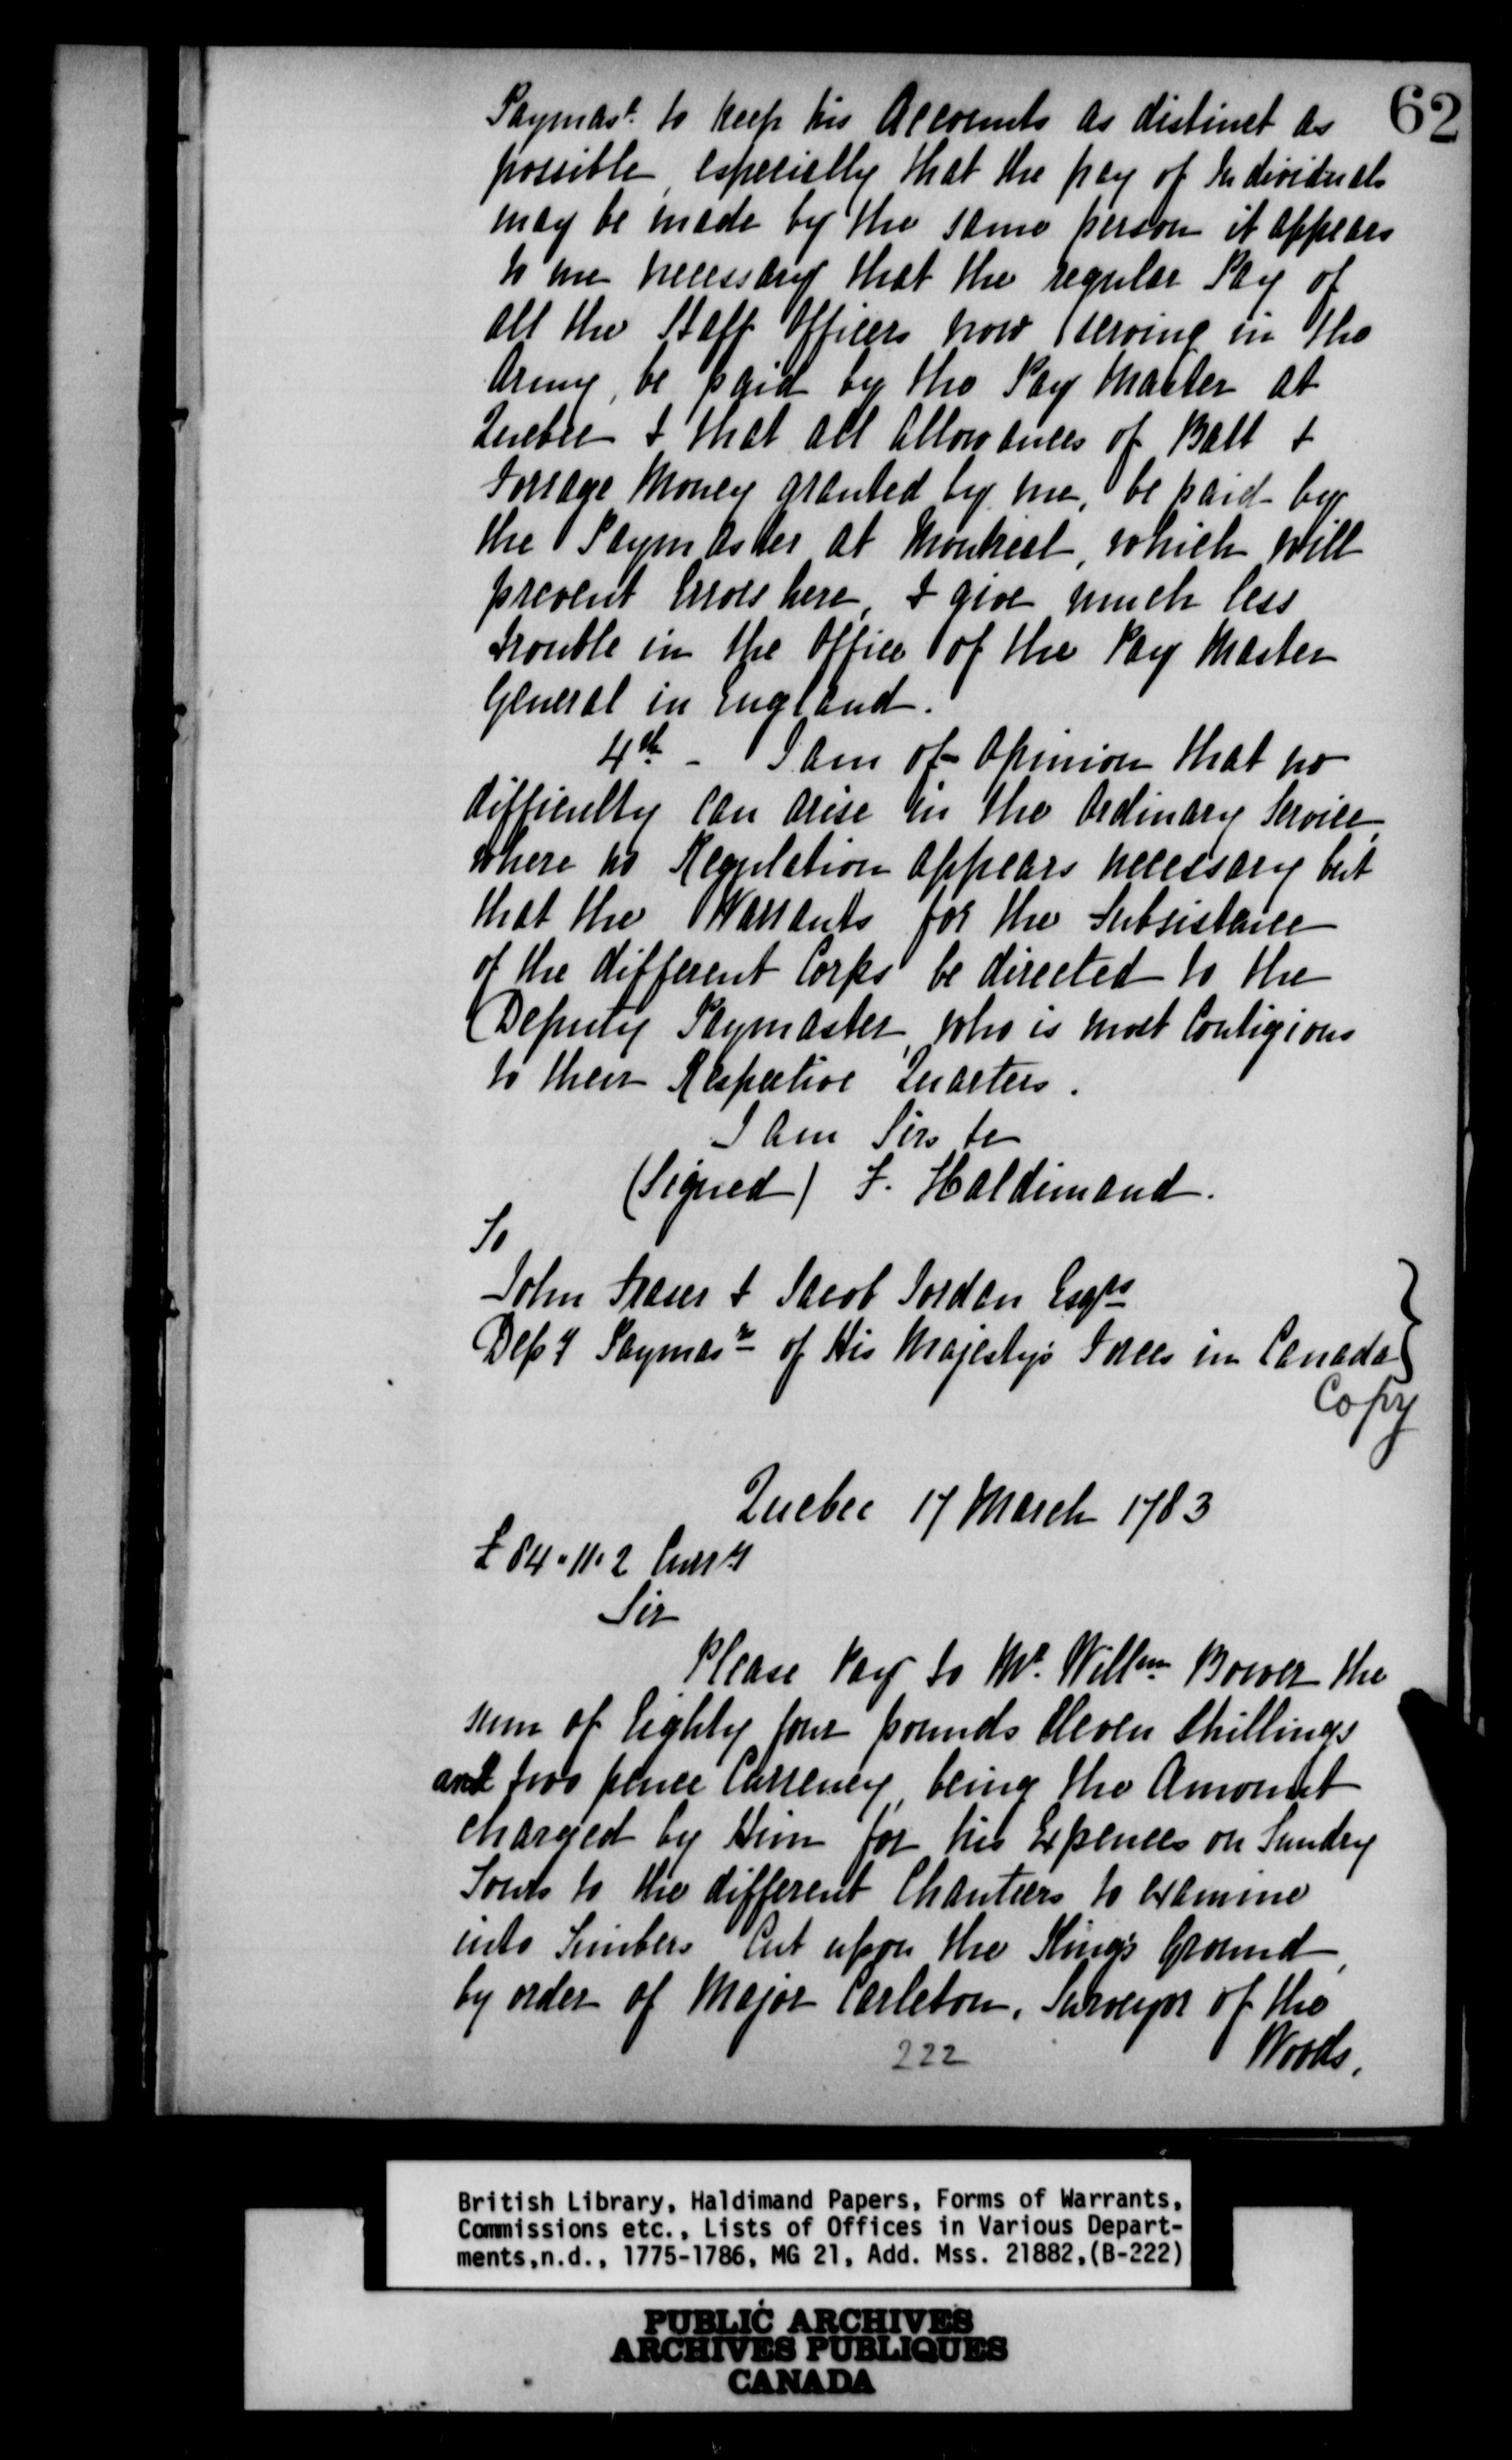 62
Paymasr. to keep his Accounts as distinct as
possible, especially that the pay of Individuals
may be made by the same person it appears
to me necessary that the regular Pay of
all the Staff Officers now serving in the
Army, be paid by the Pay Master at
Quebec & that all allowances of Batt &
Forrage Money granted by me, be paid by
the Paymaster at Montreal, which will
prevent Errors here, & give much less
trouble in the Office of the Pay Master
General in England.
4th - I am of Opinion that no
difficulty can arise in the Ordinary Service,
where no Regulation appears necessary but
that the Warrants for the Subsistance
of the different Corps be directed to the
Deputy Paymaster, who is most Contigious
to their Respective Quarters.
I am Sirs &c
(Signed) F. Haldimand.
To
John Fraser & Jacob Jordan Esqrs
Depy Paymasrs of His Majesty's Forces in Canada }
Copy
Quebec 17 March 1783
£84.11.2 Curry
Sir
Please Pay to Mr. Willm Bower the
sum of Eighty four pounds Eleven Shillings
and two pence Currency, being the Amount
charged by Him for his Expences on Sundry
Tours to the different Chantiers to examine
into Timbers Cut upon the King's Ground,
by order of Major Carleton, Surveyor of the
Woods.
222
British Library, Haldimand Papers, Forms of Warrants,
Commissions etc., Lists of Offices in Various Depart-
ments,n.d., 1775-1786, MG 21, Add. Mss. 21882,(B-222)
PUBLIC ARCHIVES
ARCHIVES PUBLIQUES
CANADA